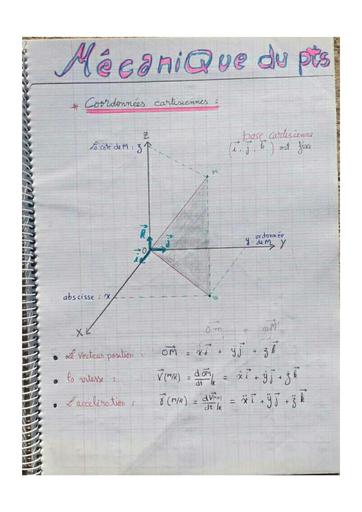 Mécanique du pts
* Coordonnées cartésiennes :
base cartésienne
(i⃗, j⃗, k⃗) est fixe
Z
la côte de M : z
M
k⃗
O
j⃗
i⃗
y : ordonnée de M
Y
abscisse : x
X
m
Om + mM
• Le vecteur position : OM⃗ = x i⃗ + y j⃗ + z k⃗
• la vitesse : V⃗(M/R) = dOM⃗/dt |R = ẋ i⃗ + ẏ j⃗ + ż k⃗
• L'accélération : γ⃗(M/R) = dV⃗(M/R)/dt |R = ẍ i⃗ + ÿ j⃗ + z̈ k⃗